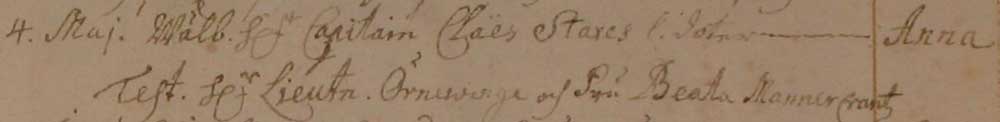 4. Maj. Wälb. H:r Capitain Claës Stares l. doter Anna
Test. H:r Lieutn. Örnewinge och Fru Beata Mannercrantz